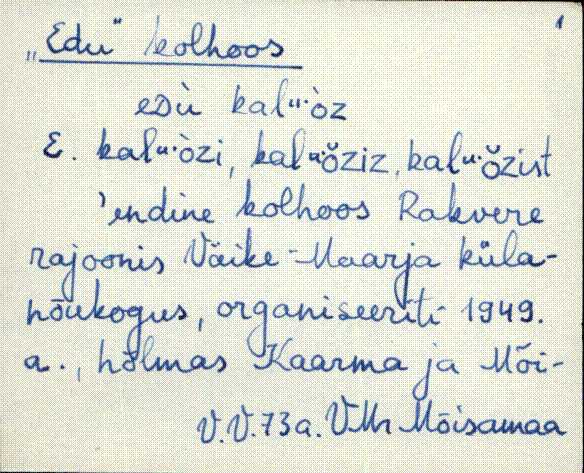 1
„Edu" kolhoos
eDù kalᵘ·òz
E. kalᵘ·òzi, kalᵘ·ŏziz, kalᵘ·ŏzist
'endine kolhoos Rakvere
rajoonis Väike-Maarja küla-
nõukogus, organiseeriti 1949.
a., hõlmas Kaarma ja Mõi-
V.V.73a. VMr Mõisamaa